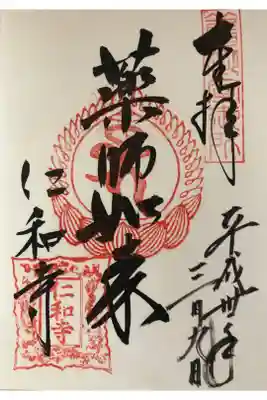 奉拝
平成卅年
三月九日
薬師如来
仁和寺
仁和寺